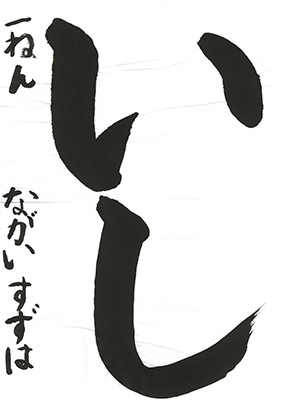 いし
一ねん ながいすずは